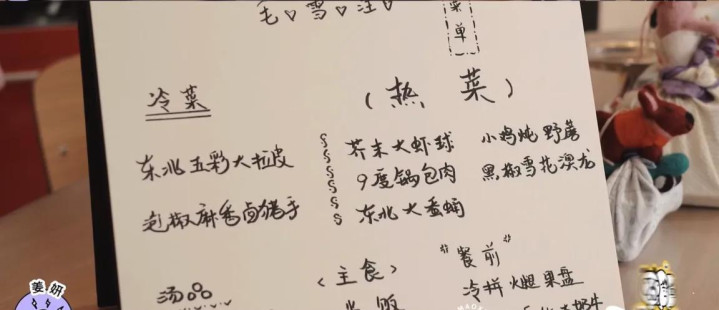 毛♡雪♡汪♡
菜单
冷菜
(热菜)
东北五彩大拉皮
芥末大虾球
小鸡炖野蘑
9度锅包肉
黑椒雪花澳龙
泡椒麻香卤猪手
东北大蚕蛹
汤品
<主食>
"餐前"
冷拼火腿果盘
米饭
姜妍